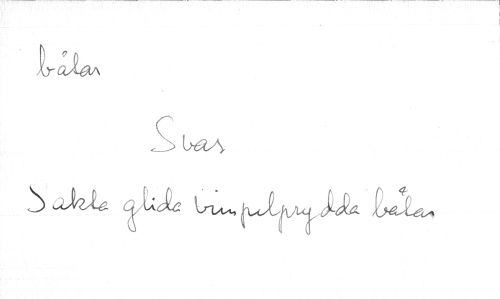 båtar
Svar
Sakta glida vimpelprydda båtar